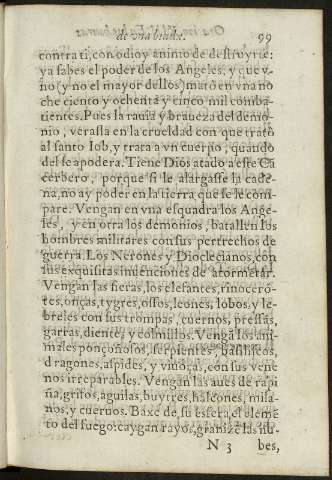 de vna biuda. 99
contra ti, con odio y animo de destruyrte:
ya sabes el poder de los Angeles, y que v-
no (y no el mayor dellos) matò en vna no
che ciento y ochenta y cinco mil comba-
tientes. Pues la rauia y braueza del demo-
nio, verasla en la crueldad con que tratò
al santo Iob, y trata a vn cuerpo, quando
del se apodera. Tiene Dios atado a este Cã
cerbero, porque si le alargasse la cade-
na, no ay poder en la tierra que se le com
pare. Vengan en vna esquadra los Ange-
les, y en otra los demonios, batallen los
hombres militares con sus pertrechos de
guerra. Los Nerones y Dioclecianos, con
sus exquisitas inuenciones de atormẽtar.
Vengan las fieras, los elefantes, rinocero-
tes, onças, tygres, ossos, leones, lobos, y le-
breles con sus trompas, cuernos, pressas,
garras, dientes, y colmillos. Vengã los ani-
males ponçoñosos, serpientes, basiliscos,
dragones, aspides, y viuoras, con sus vene
nos irreparables. Vengan las aues de rapi
ña, grifos, aguilas, buytres, halcones, mila-
nos, y cueruos. Baxe de su esfera, el elemẽ
to del fuego: caygan rayos, granize las nu-
N 3 bes,